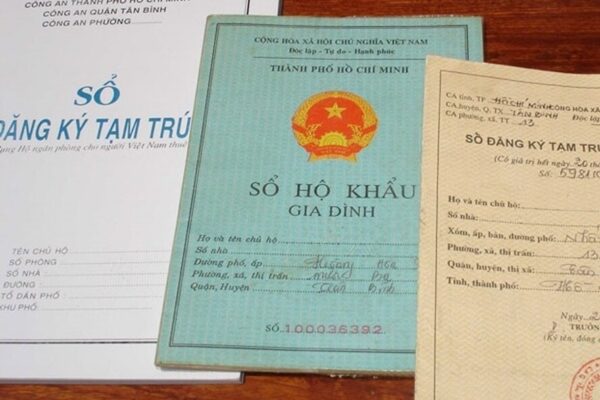 CÔNG AN THÀNH PHỐ HỒ CHÍ MINH
CÔNG AN QUẬN TÂN BÌNH
CÔNG AN PHƯỜNG
SỔ
ĐĂNG KÝ TẠM TRÚ
dạng Hộ ngăn phòng cho người Việt Nam thuê
TÊN CHỦ HỘ
SỐ PHÒNG
SỐ NHÀ
ĐƯỜNG
TỔ DÂN PHỐ
KHU PHỐ
CỘNG HÒA XÃ HỘI CHỦ NGHĨA VIỆT NAM
Độc lập - Tự do - Hạnh phúc
THÀNH PHỐ HỒ CHÍ MINH
SỔ HỘ KHẨU
GIA ĐÌNH
Họ và tên chủ hộ
Số nhà
Đường phố, ấp Hoàng Hoa
Phường, xã, thị trấn
Quận, Huyện Tân Bình
SỐ 100036392
CA tỉnh, TP HỒ CHÍ MINH
CA huyện, Q, TX TÂN BÌNH
CA phường, xã, TT 13
CỘNG HÒA XÃ
Độc
SỔ ĐĂNG KÝ TẠM TRÚ
(Có giá trị hết ngày 20 th
Số: 598110
Họ và tên chủ hộ:
Số nhà:
Xóm, ấp, bản, đường phố:
Phường, xã, thị trấn: 13
Quận, huyện, thị xã: Tân
Tỉnh, thành phố: Hồ
Ngày 2
TRƯỞN
(Ký tên, đóng